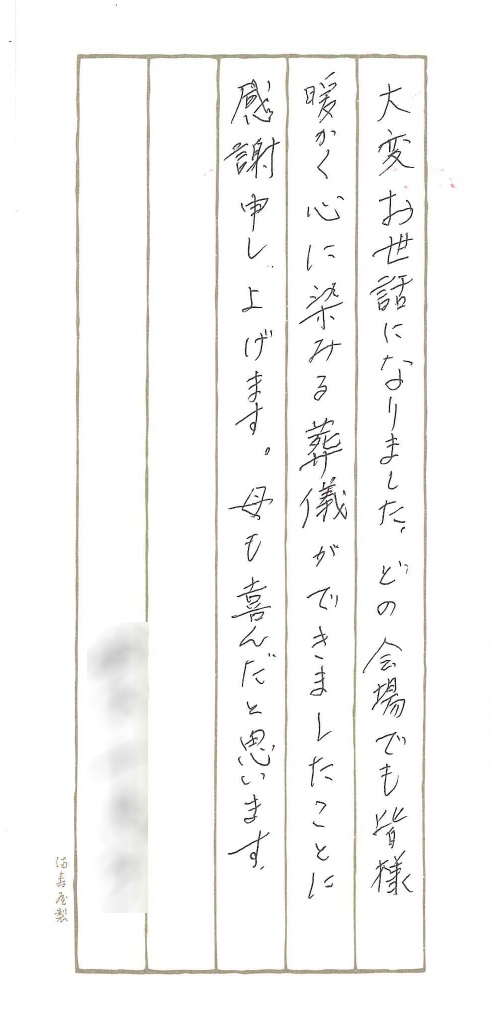 大変お世話になりました。どの会場でも皆様
暖かく心に染みる葬儀ができましたことに
感謝申し上げます。母も喜んだと思います。
満寿屋製